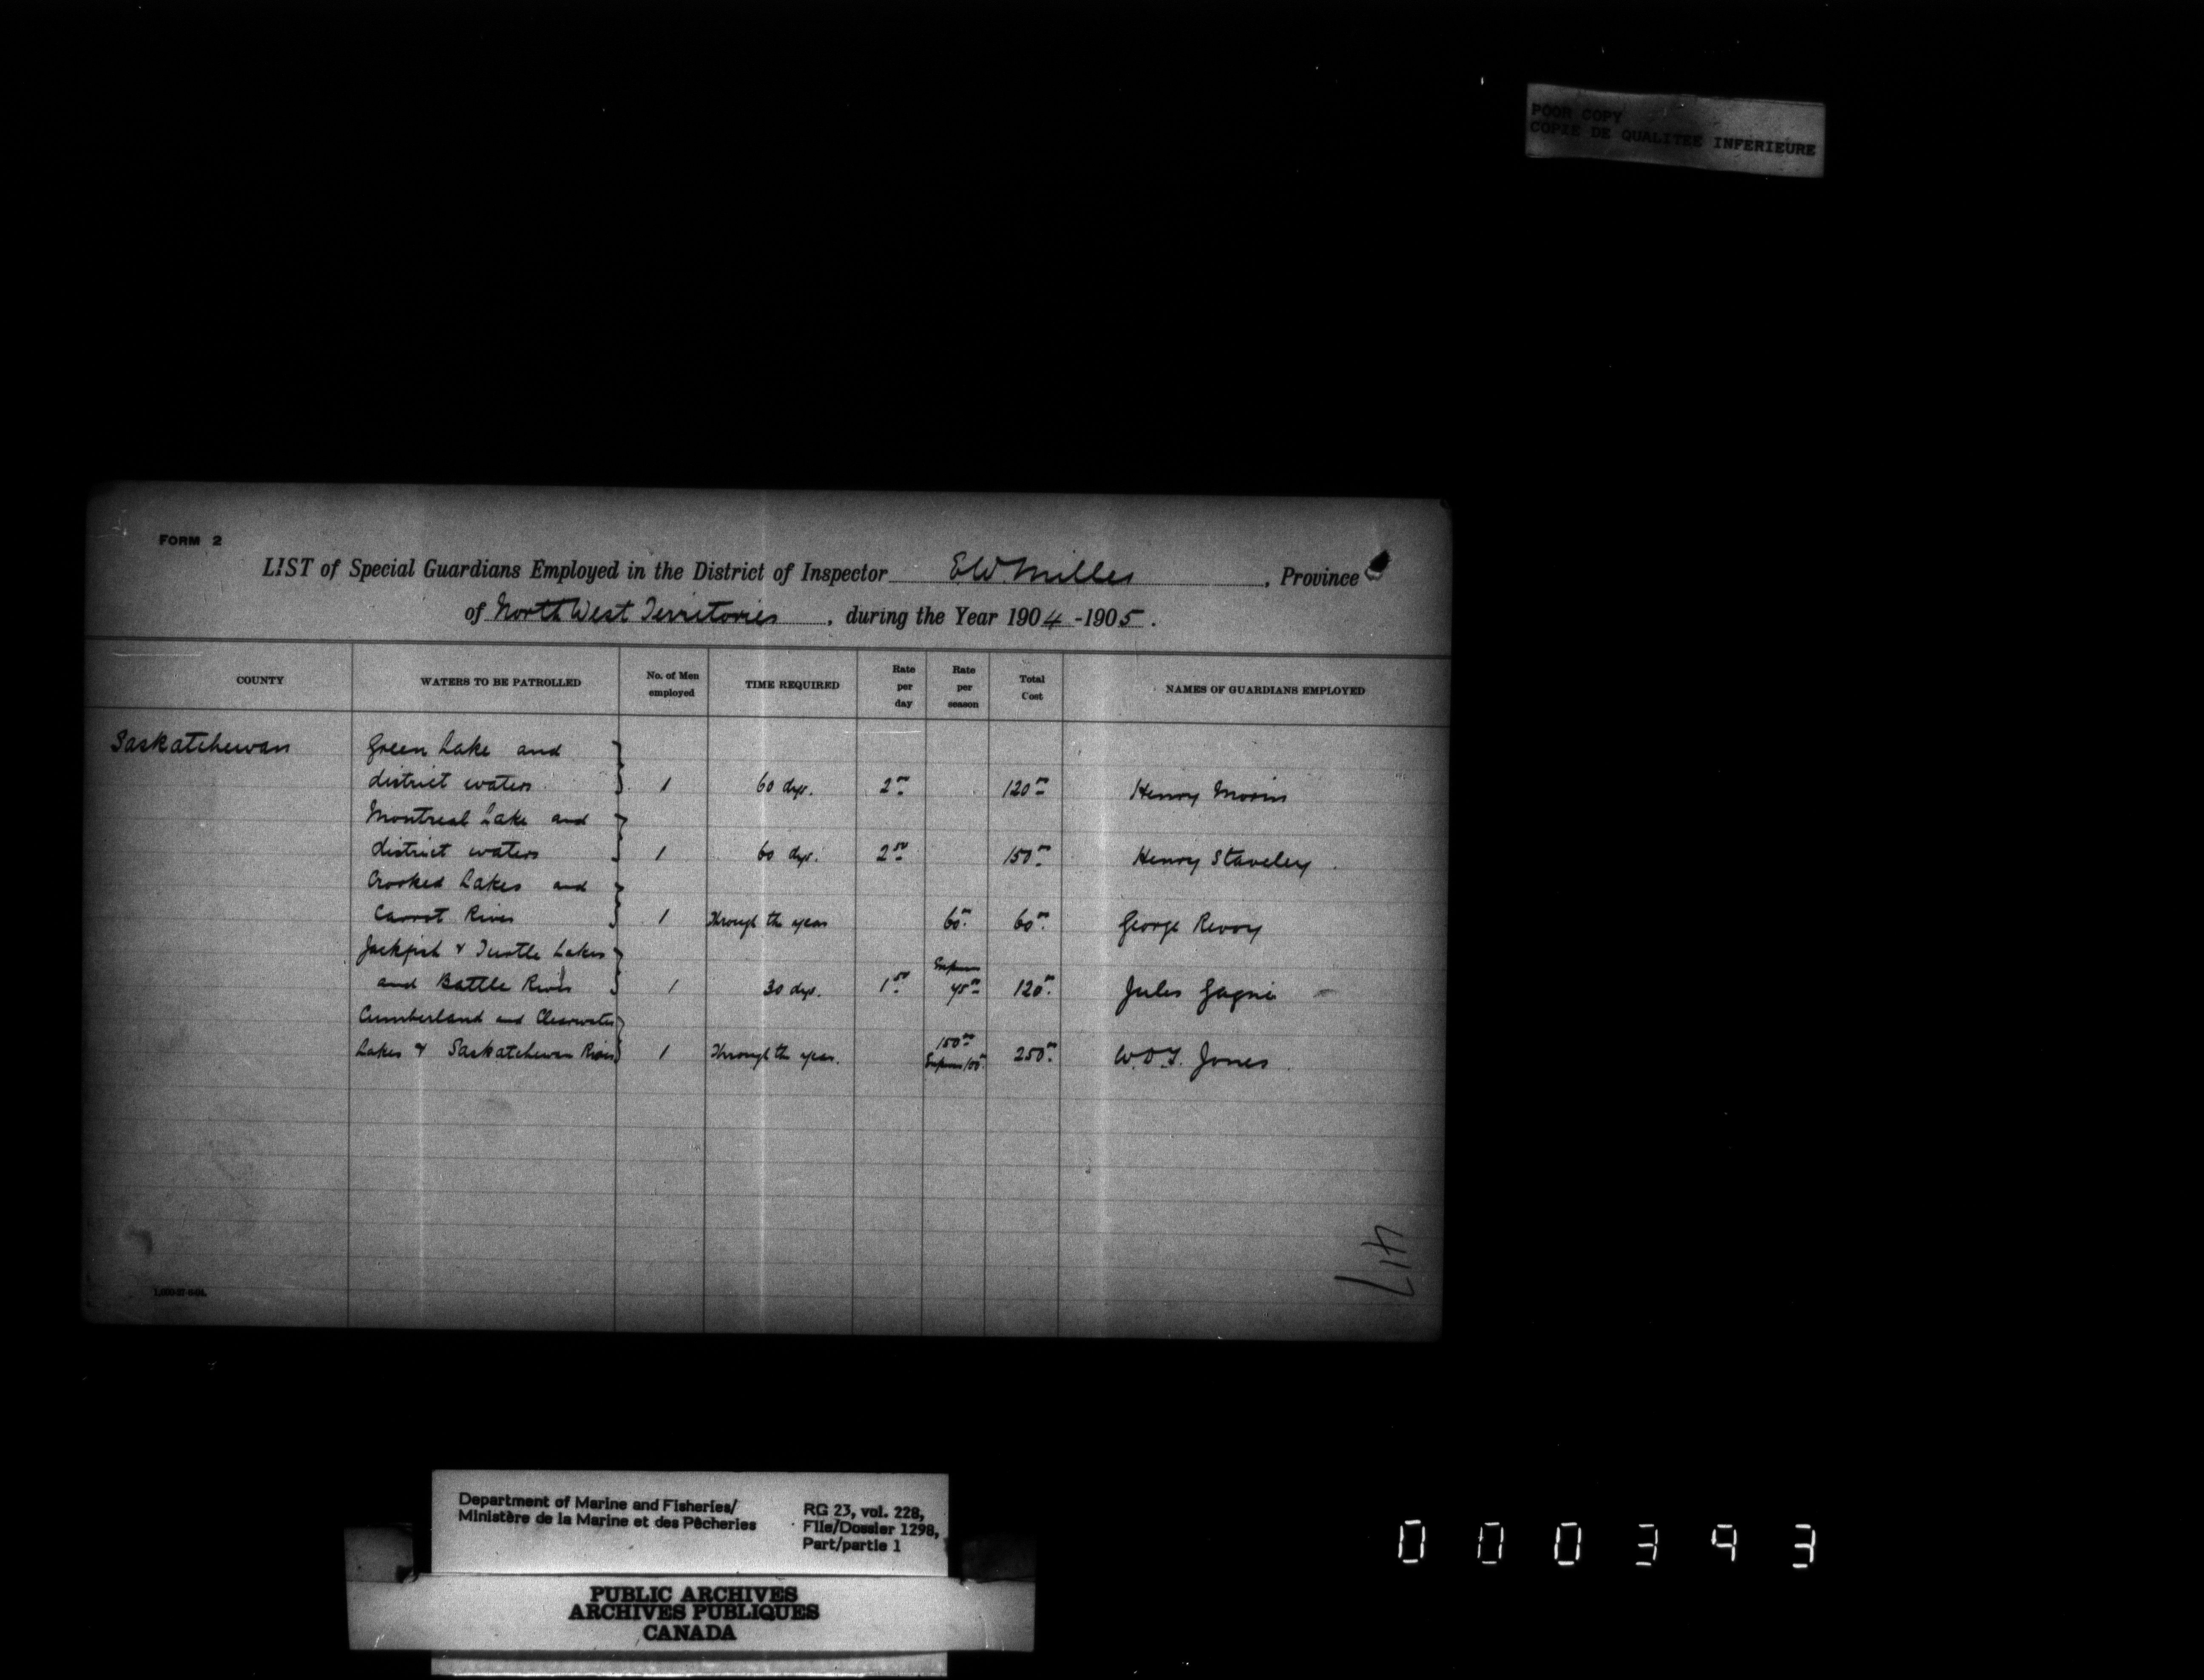 POOR COPY
COPIE DE QUALITEE INFERIEURE
FORM 2
LIST of Special Guardians Employed in the District of Inspector E W Miller, Province
of North West Territories, during the Year 1904-1905.
COUNTY WATERS TO BE PATROLLED No. of Men employed TIME REQUIRED Rate per day Rate per season Total Cost NAMES OF GUARDIANS EMPLOYED
Saskatchewan Green Lake and
district waters 1 60 dys. 2.00 120.00 Henry Morin
Montreal Lake and
district waters 1 60 dys. 2.50 150.00 Henry Staveley
Crooked Lakes and
Carrot River 1 Through the year 60.00 60.00 George Revoy
Jackfish & Turtle Lakes
and Battle River 1 30 dys. 1.50 120.00 Jules Gagne
Cumberland and Clearwater
Lakes & Saskatchewan River 1 Through the year. 150.00 Expenses 100.00 250.00 W.D.J. Jones
417
Department of Marine and Fisheries/
Ministère de la Marine et des Pêcheries
RG 23, vol. 228,
File/Dossier 1298,
Part/partie 1
PUBLIC ARCHIVES
ARCHIVES PUBLIQUES
CANADA
000393